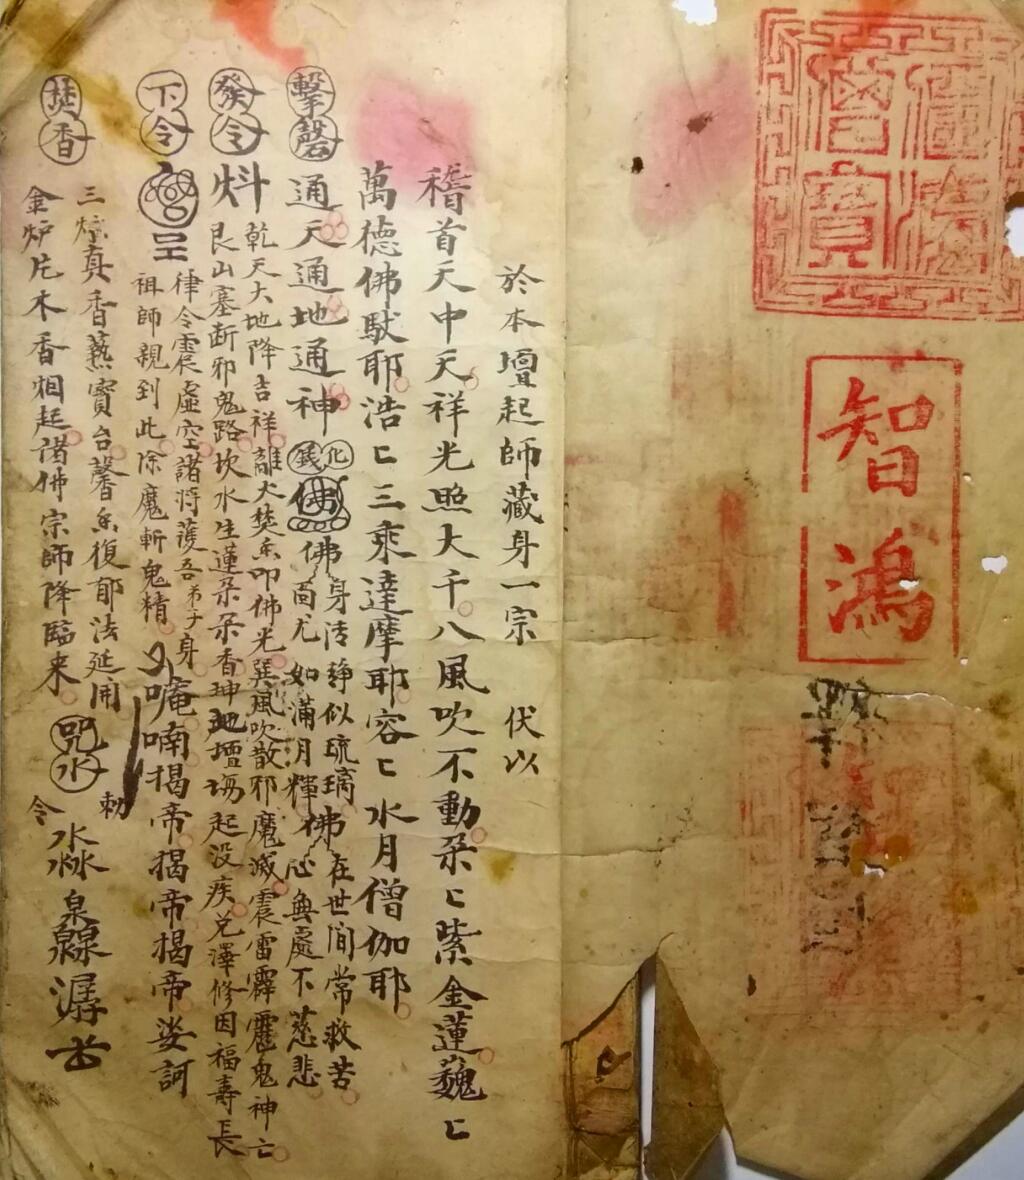 佛法僧寶
智鴻
於本壇起師藏身一宗　伏以
稽首天中天祥光照大千八風吹不動朶〻紫金蓮巍〻
萬德佛馱耶浩〻三乘達摩耶容〻水月僧伽耶
擊磬 通天通地通神 化錢 佛 佛身清静似琉璃佛
面尤如滿月輝佛在世間常救苦
心無處不慈悲
發令 炓 乾天大地降吉祥離火焚香叩佛光巽風吹散邪魔滅震雷霹靂鬼神亡
艮山塞断邪鬼路坎水生蓮朶朶香坤地壇塲起没疾兌澤修因福壽長
下令 律令震虚空諸將護吾弟子身
祖師親到此除魔斬鬼精 唵喃揭帝揭帝揭帝娑訶
焚香 三炉真香爇寶台馨香復郁法延開
金炉片木香烟起諸佛宗師降臨来 咒水 勅令 水淼灥潺